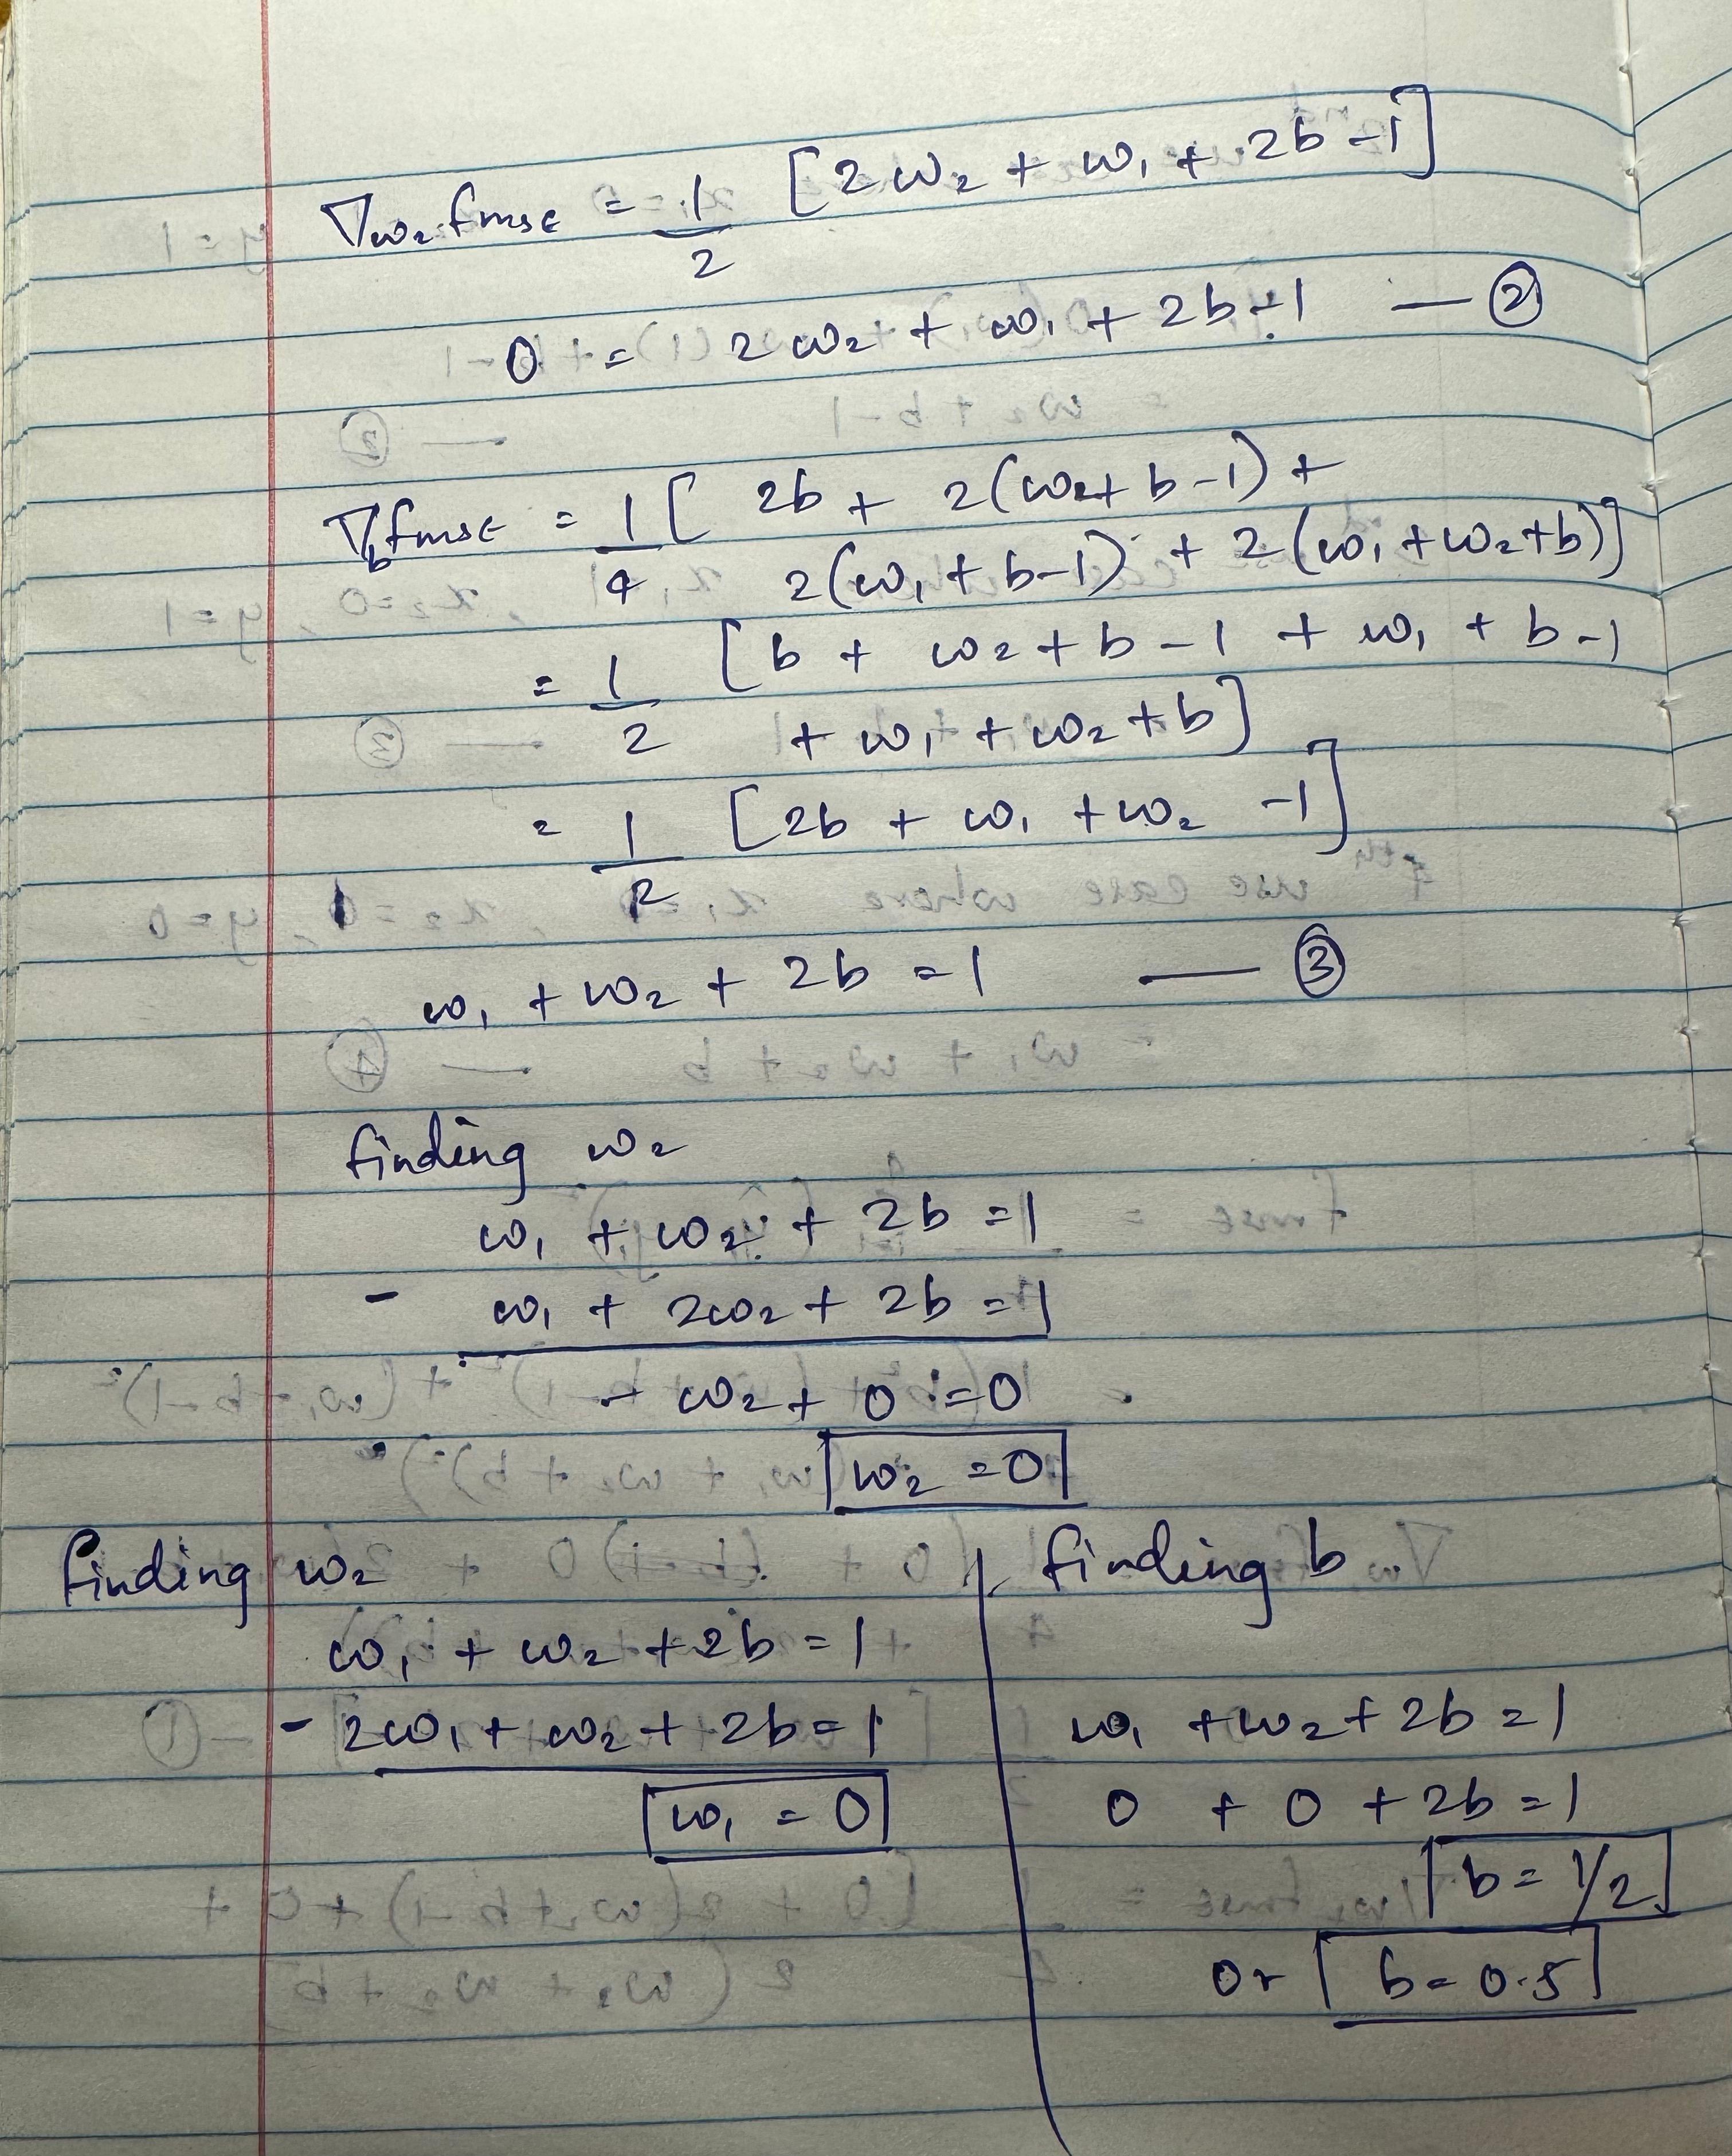 ∇w₂ fmse = 1/2 [2w₂ + w₁ + 2b - 1]
0 = 2w₂ + w₁ + 2b - 1 — ②
∇b fmse = 1/4 [ 2b + 2(w₂ + b - 1) +
2(w₁ + b - 1) + 2(w₁ + w₂ + b)]
= 1/2 [b + w₂ + b - 1 + w₁ + b - 1
+ w₁ + w₂ + b]
= 1 [2b + w₁ + w₂ - 1]
w₁ + w₂ + 2b = 1 — ③
finding w₂
w₁ + w₂ + 2b = 1
- w₁ + 2w₂ + 2b = 1
- w₂ + 0 = 0
w₂ = 0
finding w₂
w₁ + w₂ + 2b = 1
- 2w₁ + w₂ + 2b = 1
w₁ = 0
finding b
w₁ + w₂ + 2b = 1
0 + 0 + 2b = 1
b = 1/2
or b = 0.5